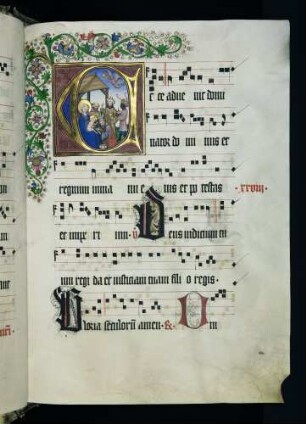 E c ce adue nit domi
nator do mi nus et
regnum in ma nu e ius et po testas xxviii.
et impe ri um. v D eus iudicium tu
um regi da et iusticiam tuam fili o regis.
G loria seculorũ amen. &. O m